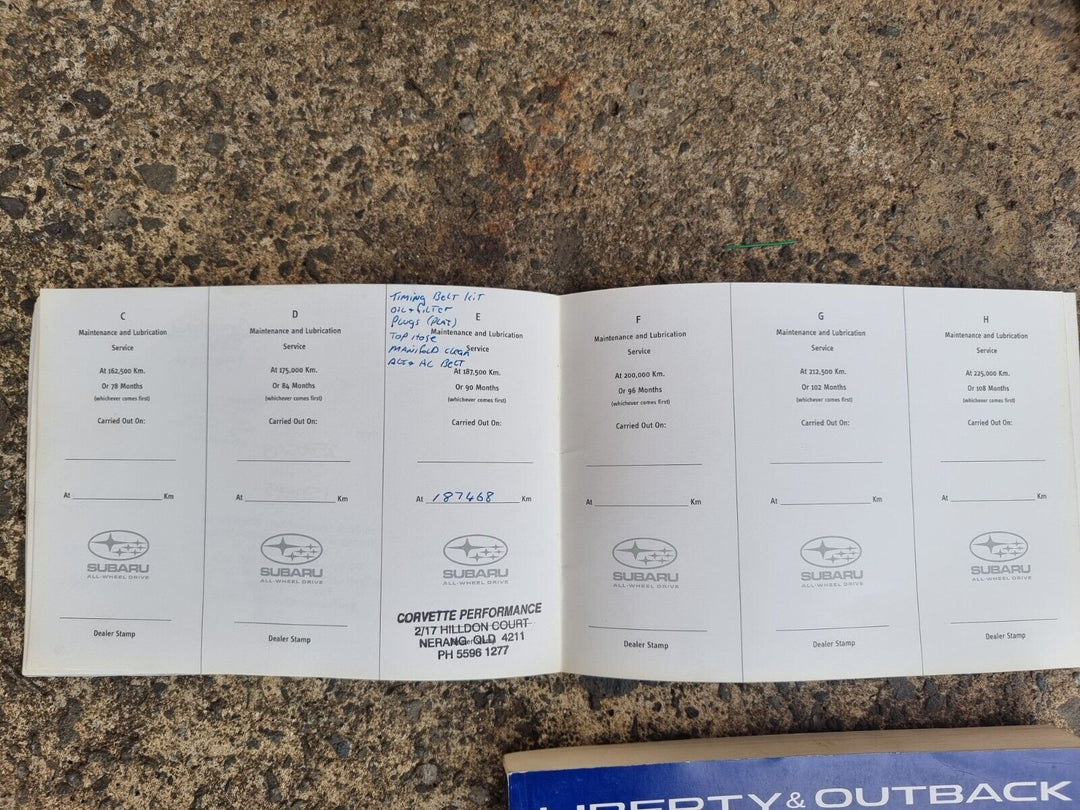 C
Maintenance and Lubrication
Service
At 162,500 Km.
Or 78 Months
(whichever comes first)
Carried Out On:
At Km
SUBARU
ALL-WHEEL DRIVE
Dealer Stamp
D
Maintenance and Lubrication
Service
At 175,000 Km.
Or 84 Months
(whichever comes first)
Carried Out On:
At Km
SUBARU
ALL-WHEEL DRIVE
Dealer Stamp
TIMING BELT KIT
OIL + FILTER
PLUGS (PLAT)
TOP HOSE
MANIFOLD CLEAN
ALT + AC BELT
E
Maintenance and Lubrication
Service
At 187,500 Km.
Or 90 Months
(whichever comes first)
Carried Out On:
At 187468 Km
SUBARU
ALL-WHEEL DRIVE
CORVETTE PERFORMANCE
2/17 HILLDON COURT
NERANG QLD 4211
PH 5596 1277
F
Maintenance and Lubrication
Service
At 200,000 Km.
Or 96 Months
(whichever comes first)
Carried Out On:
At Km
SUBARU
ALL-WHEEL DRIVE
Dealer Stamp
G
Maintenance and Lubrication
Service
At 212,500 Km.
Or 102 Months
(whichever comes first)
Carried Out On:
At Km
SUBARU
ALL-WHEEL DRIVE
Dealer Stamp
H
Maintenance and Lubrication
Service
At 225,000 Km.
Or 108 Months
(whichever comes first)
Carried Out On:
At Km
SUBARU
ALL-WHEEL DRIVE
Dealer Stamp
LIBERTY & OUTBACK